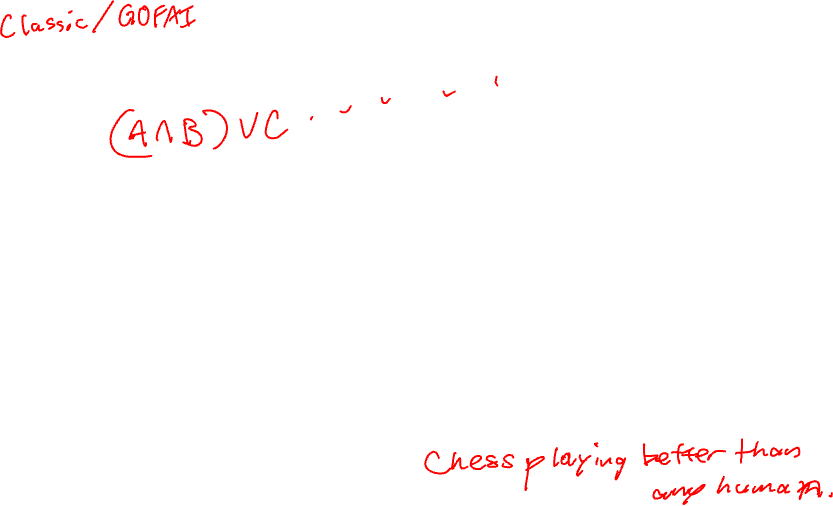 Classic/GOFAI
(A∧B)∨C . . . . .
Chess playing better than
any human.